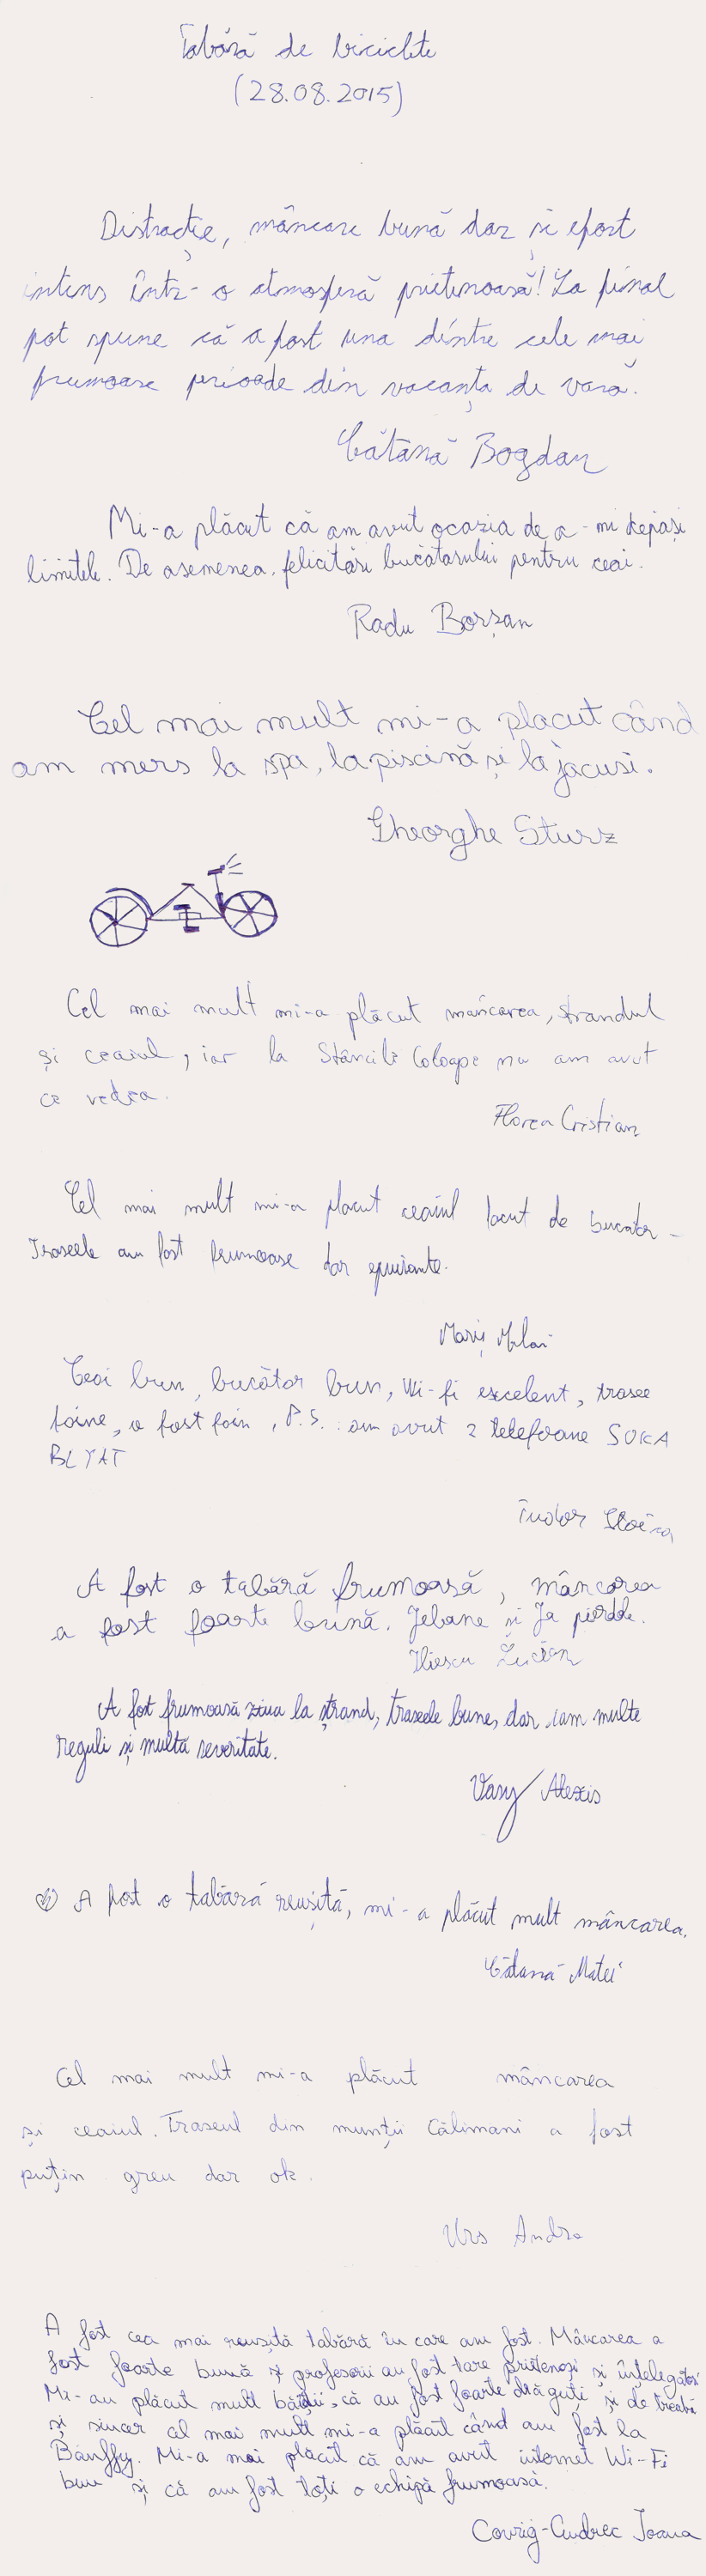 Tabără de biciclete
(28.08.2015)
Distracție, mâncare bună dar și efort
intens într-o atmosferă prietenoasă! La final
pot spune că a fost una dintre cele mai
frumoase perioade din vacanța de vară.
Cătană Bogdan
Mi-a plăcut că am avut ocazia de a-mi depăși
limitele. De asemenea, felicitări bucătarului pentru ceai.
Radu Borșan
Cel mai mult mi-a placut când
am mers la spa, la piscină și la jacusi.
Gheorghe Sturz
Cel mai mult mi-a plăcut mâncarea, ștrandul
și ceaiul, iar la Stâncile Coloape nu am avut
ce vedea.
Florea Cristian
Cel mai mult mi-a placut ceaiul facut de bucatar -
Traseele au fost frumoase dar epuizante.
Mariș
Ceai bun, bucător bun, Wi-fi excelent, trasee
foine, a fost foin, P.S.: am avut 2 telefoane SUKA
BLYAT
Tudor
A fost o tabără frumoasă, mâncarea
a fost foarte bună. și
Iliescu Lucian
A fost frumoasă ziua la ștrand, traseele bune, dar cam multe
reguli și multă severitate.
Vasy Alexis
A fost o tabără reușită, mi-a plăcut mult mâncarea.
Cătană Matei
Cel mai mult mi-a plăcut mâncarea
și ceaiul. Traseul din munții Călimani a fost
puțin greu dar ok.
Urs Andra
A fost cea mai reușită tabără în care am fost. Mâncarea a
fost foarte bună și profesorii au fost tare prietenoși și înțelegători
Mi-au plăcut mult băieții, că au fost foarte drăguți și de treabă
și sincer cel mai mult mi-a plăcut când am fost la
Banffy. Mi-a mai plăcut că am avut internet Wi-Fi
bun și că am fost toți o echipă frumoasă.
Covrig-Andrec Ioana